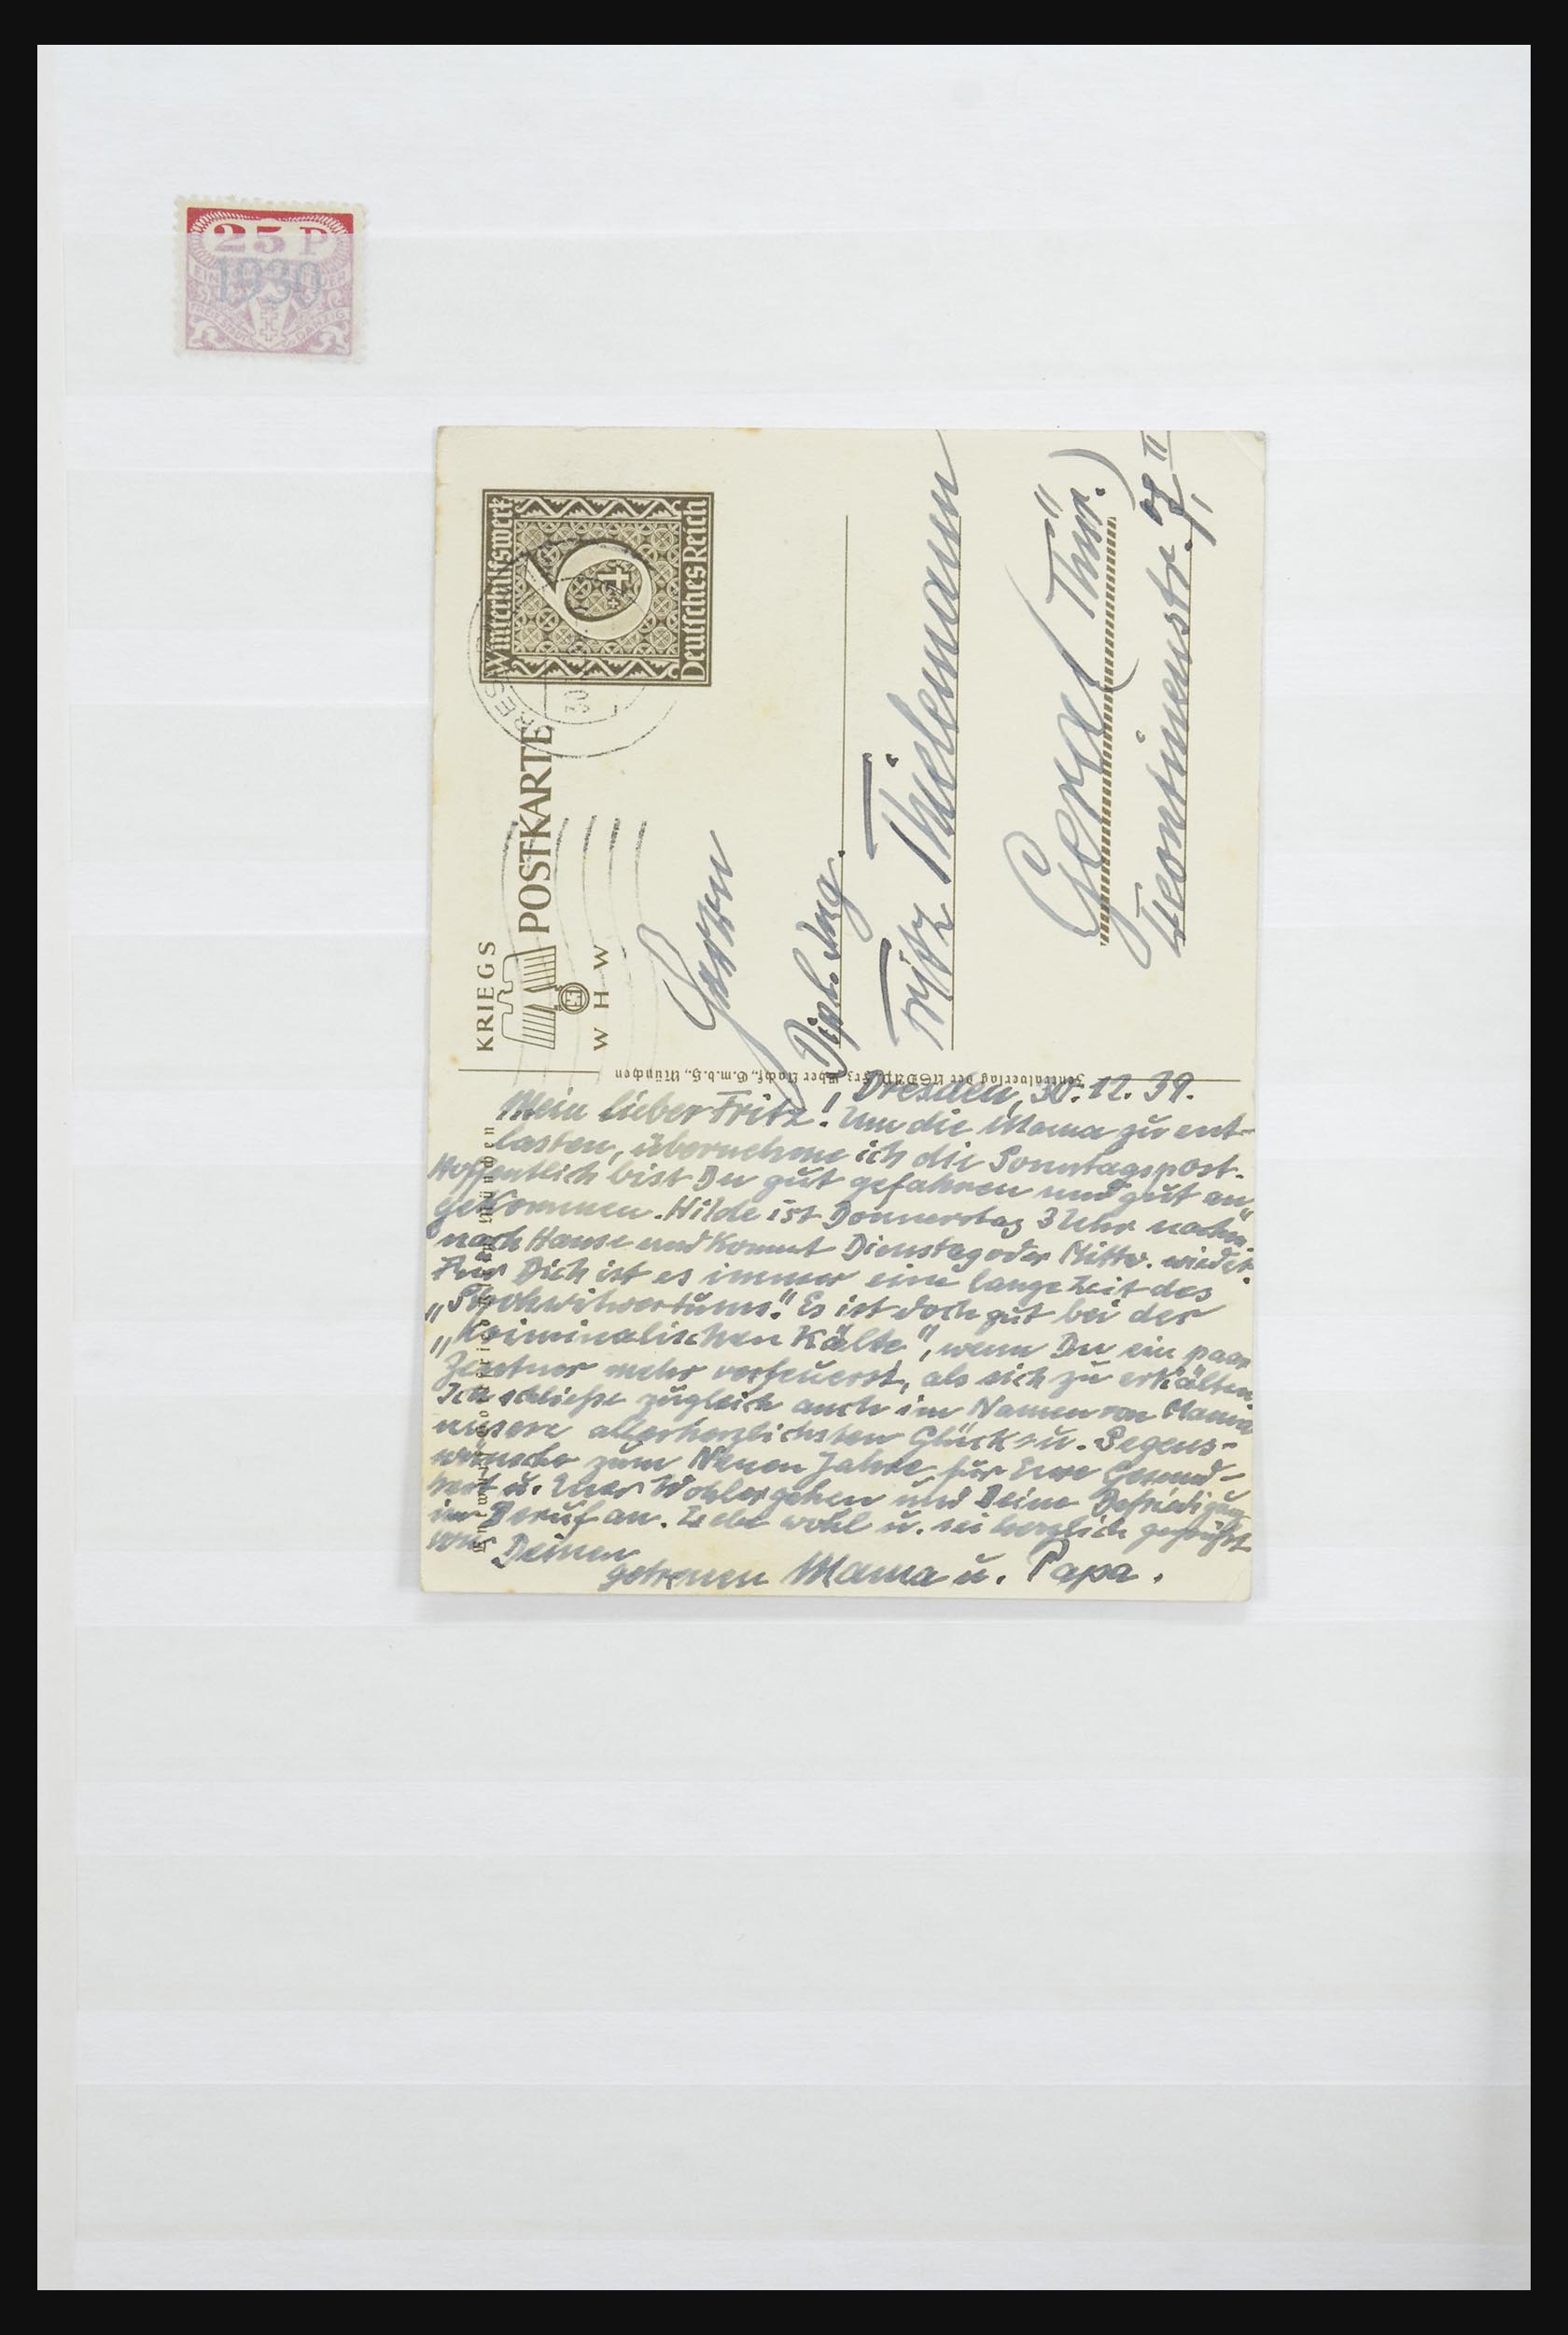 25 P
1930
DANZIG
KRIEGS
POSTKARTE
W H W
Winterhilfswerk
6
Deutsches Reich
Herrn
Dipl. Ing.
Fritz Thielemann
Gera (Thür.)
Leontinenstr. 7, II
Zentralverlag der NSDAP., Frz. Eher Nachf., G.m.b.H., München
Dresden, 30.12.39.
Mein lieber Fritz! Um die Mama zu ent-
lasten, übernehme ich die Sonntagspost.
Hoffentlich bist Du gut gefahren und gut an-
gekommen. Hilde ist Donnerstag 3 Uhr nachm.
nach Hause und kommt Dienstag oder Mittw. wieder.
Für Dich ist es immer eine lange Zeit des
„Strohwitwertums". Es ist doch gut bei der
„kriminalischen Kälte", wenn Du ein paar
Zentner mehr verfeuerst, als sich zu erkälten.
Ich schließe zugleich auch im Namen von Mama
unsere allerherzlichsten Glück- u. Segens-
wünsche zum Neuen Jahre für Eure Gesund-
heit u. Euer Wohlergehen und Deine Befriedigung
im Beruf an. Lebe wohl u. sei herzlich gegrüßt
von Deinen
getreuen Mama u. Papa.